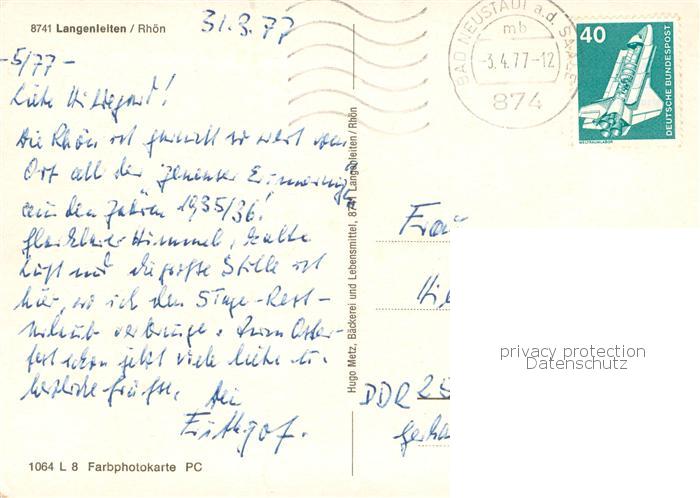 8741 Langenleiten / Rhön
31.3.77
-5/77-
Liebe Hildegard!
Die Rhön ist
Ort all der Jenenser Erinnerungen
aus den Jahren 1935/36!
Himmel, kalte
Luft und die große Stille ist
hier, wo ich den 5 Tage-Rest-
urlaub verbringe. Zum Oster-
fest schon jetzt viele liebe u.
herzliche Grüße,
Dein
Hugo Metz, Bäckerei und Lebensmittel, 8741 Langenleiten/Rhön
BAD NEUSTADT a.d. SAALE
mb
-3.4.77-12
874
40
DEUTSCHE BUNDESPOST
WELTRAUMLABOR
Frau
DDR
privacy protection
Datenschutz
1064 L 8 Farbphotokarte PC